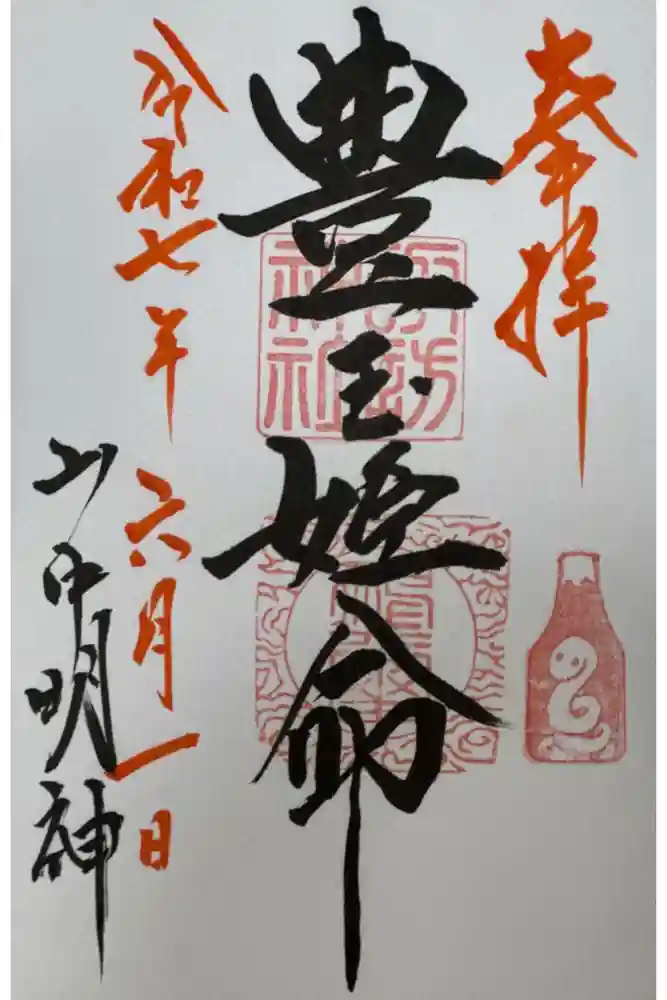 奉拝
豊玉姫命
諏訪
神社
令和七年
六月一日
山中明神